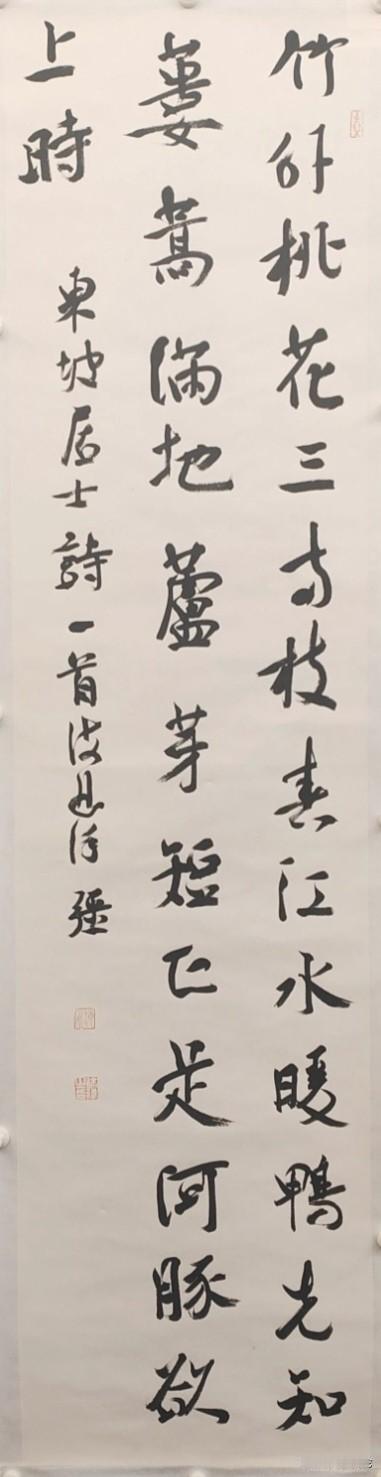 竹外桃花三两枝春江水暖鸭先知
蒌蒿满地蘆芽短正是河豚欲
上時
東坡居士詩一首
彊